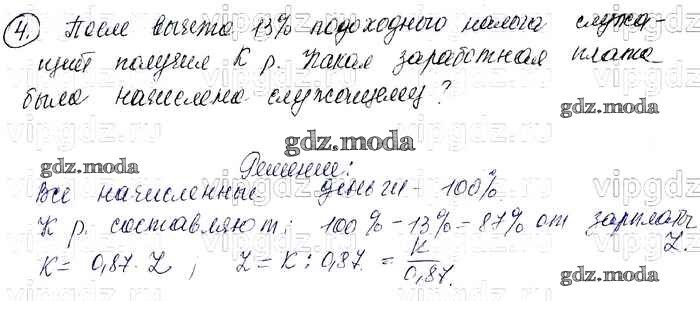 4. После вычета 13% подоходного налога служа-
щий получил К р. Какая заработная плата
была начислена служащему?
gdz.moda
gdz.moda
gdz.moda
Решение:
Все начисленные деньги - 100%.
К р. составляют: 100% - 13% = 87% от зарплаты
Z.
К = 0,87 · Z ; Z = К : 0,87 = К/0,87.
gdz.moda
gdz.moda
vipgdz.ru